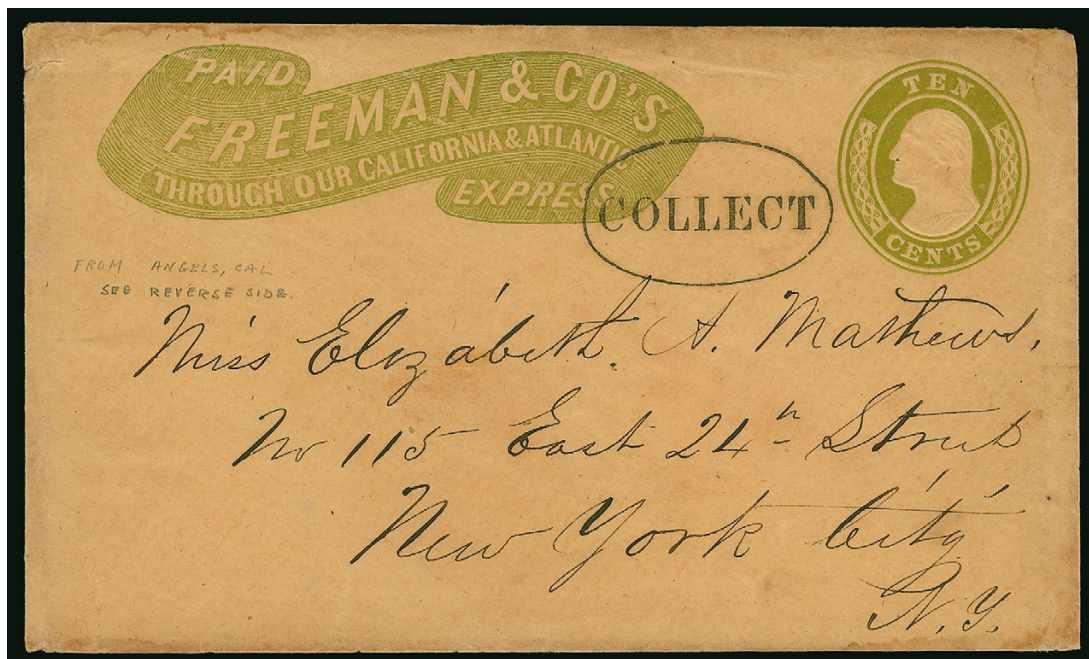 PAID
FREEMAN & CO'S
THROUGH OUR CALIFORNIA & ATLANTIC
EXPRESS
COLLECT
TEN
CENTS
FROM ANGELS, CAL
SEE REVERSE SIDE.
Miss Elizabeth. A. Mathews,
No 115 East 24th Street
New York City
N. Y.